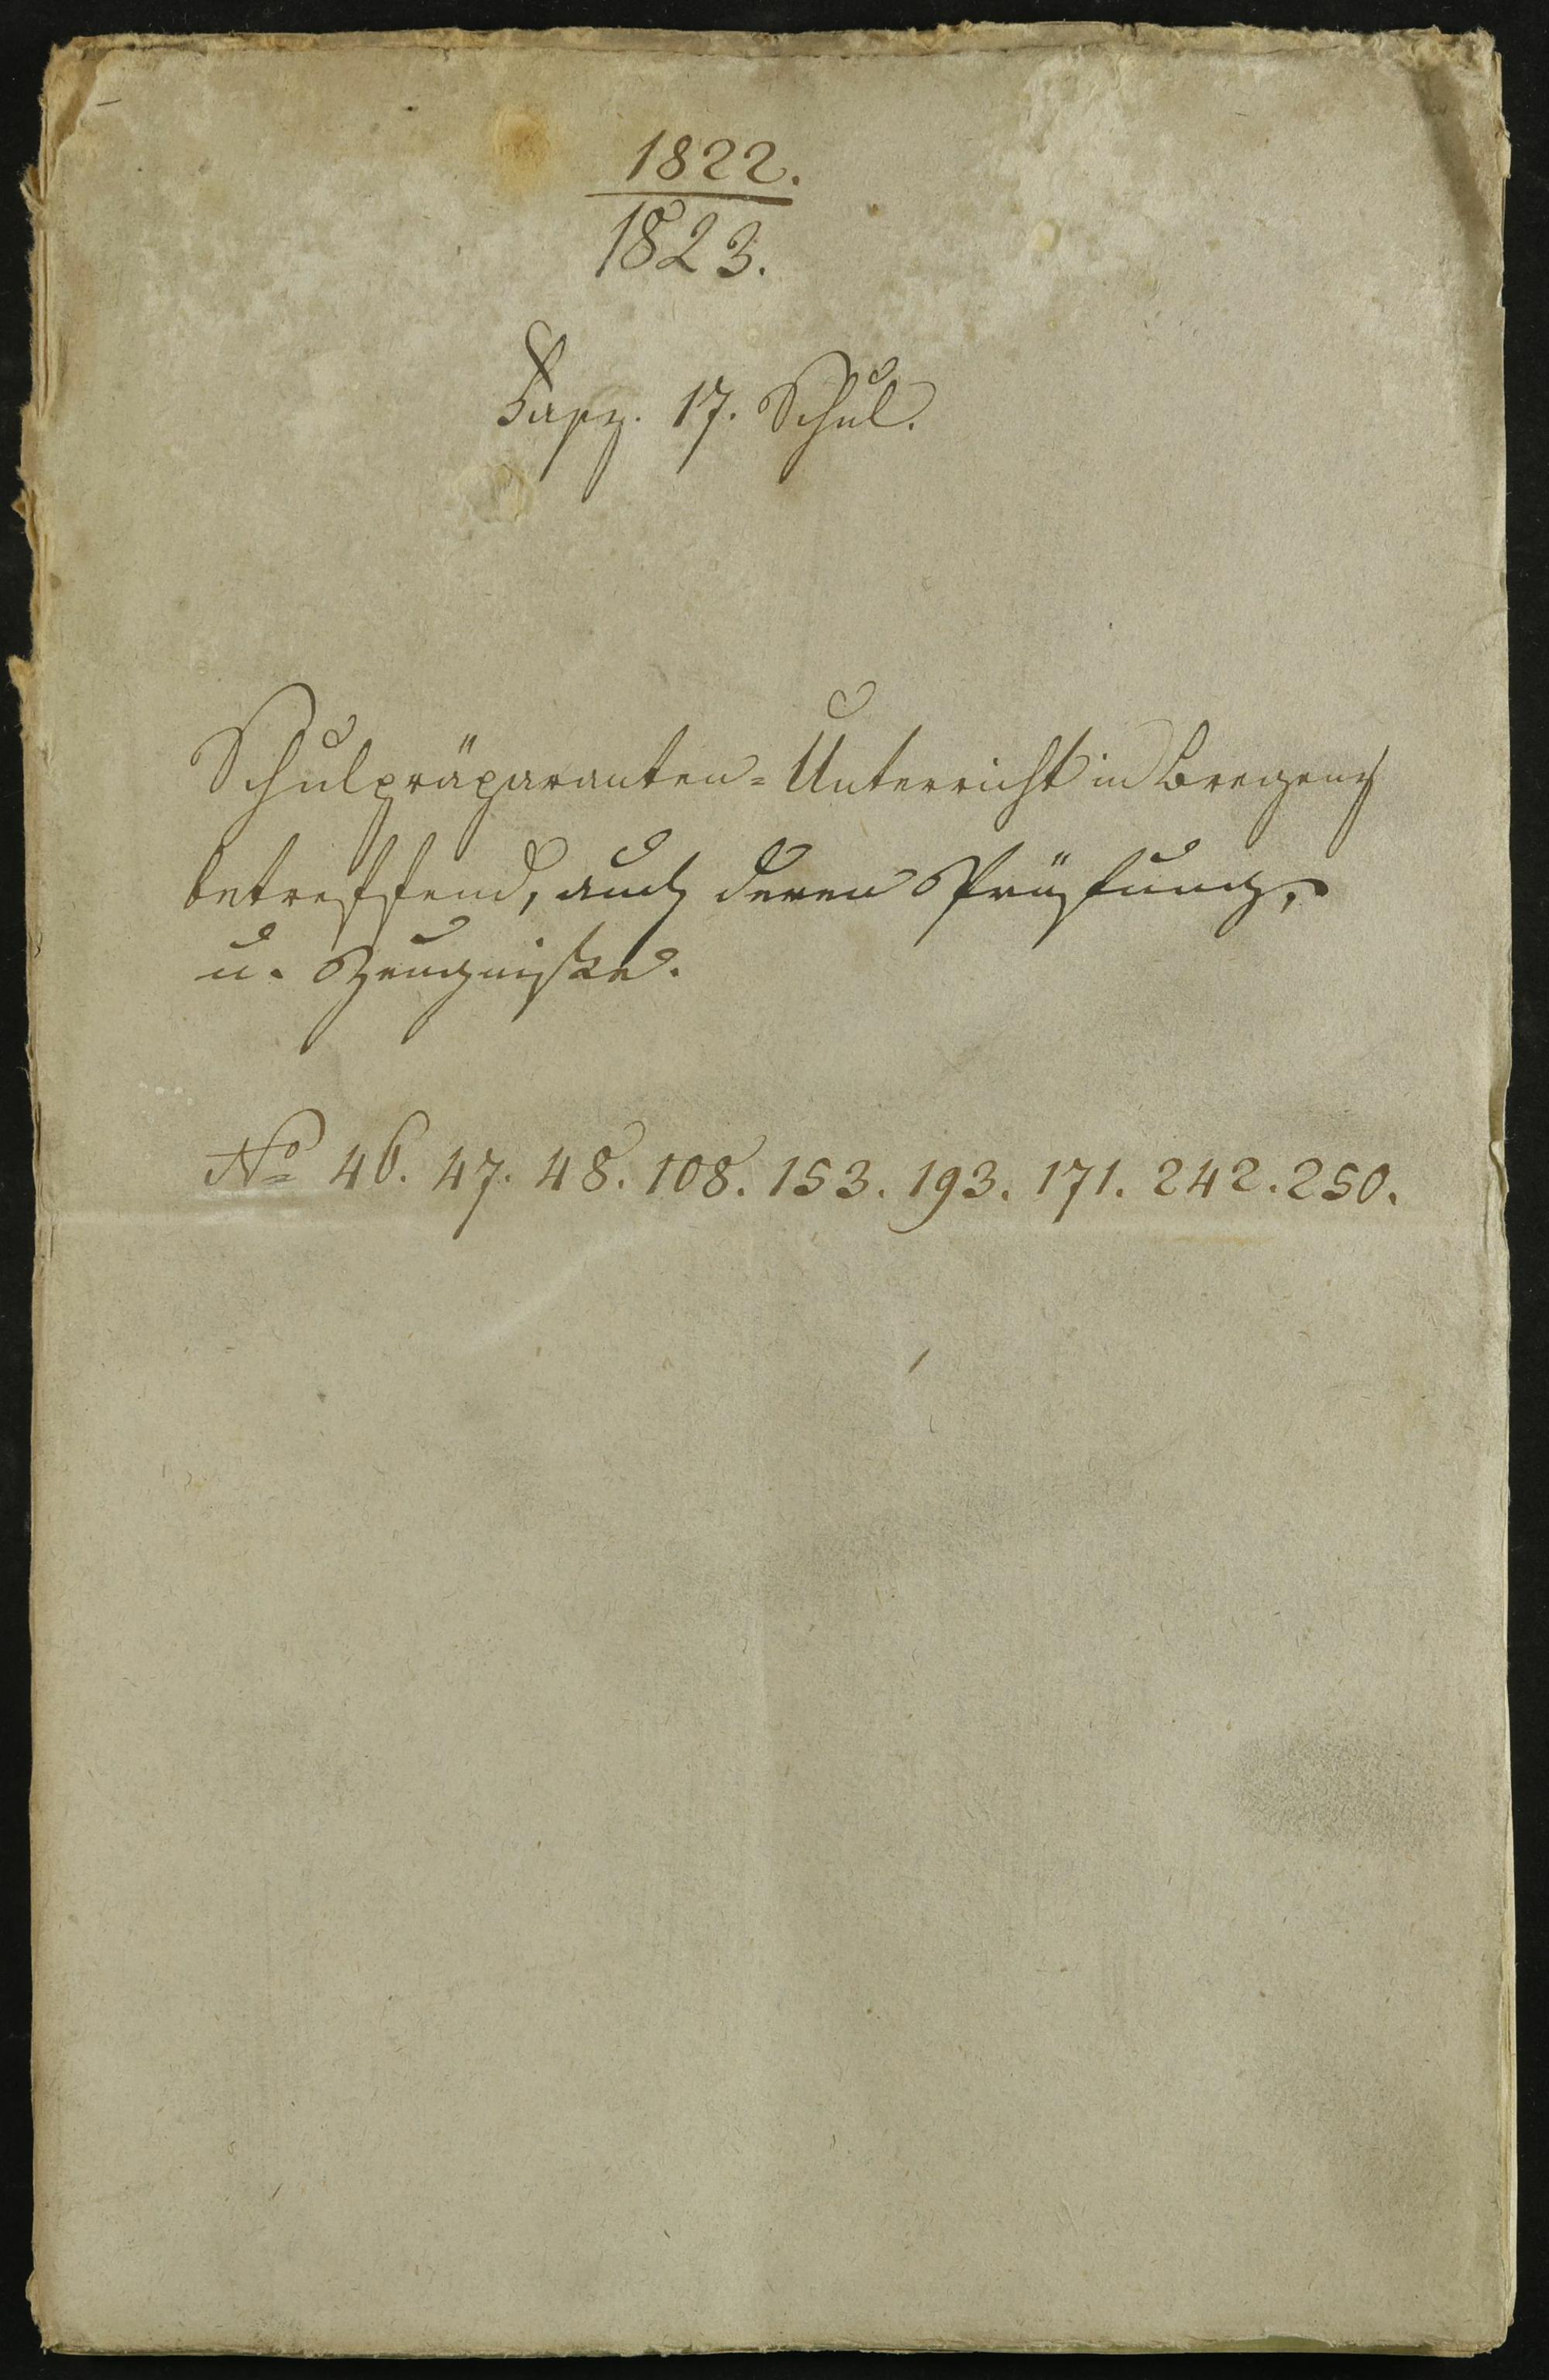 1822.
1823.
Fasz. 17. Schul.
Schulpräparanten-Unterricht in Bregenz
betreffend, auch deren Prüfung,
u. Zeugniße.
No 46. 47. 48. 108. 153. 193. 171. 242. 250.